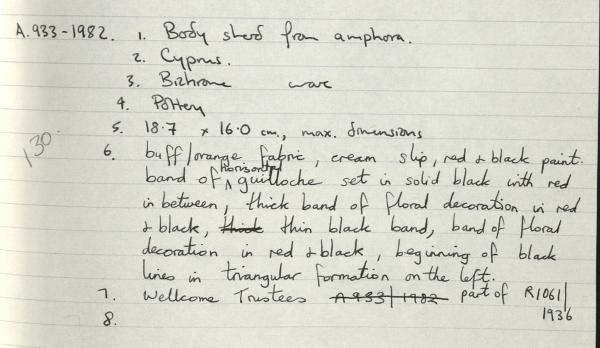 A.933-1982. 1. Body sherd from amphora.
2. Cyprus.
3. Bichrome ware
4. Pottery
5. 18.7 x 16.0 cm., max. dimensions
130.
6. buff/orange fabric, cream slip, red & black paint.
band of horizontal guilloche set in solid black with red
in between, thick band of floral decoration in red
& black, thick thin black band, band of floral
decoration in red & black, beginning of black
lines in triangular formation on the left.
7. Wellcome Trustees A933/1982 part of R1061/
1936
8.